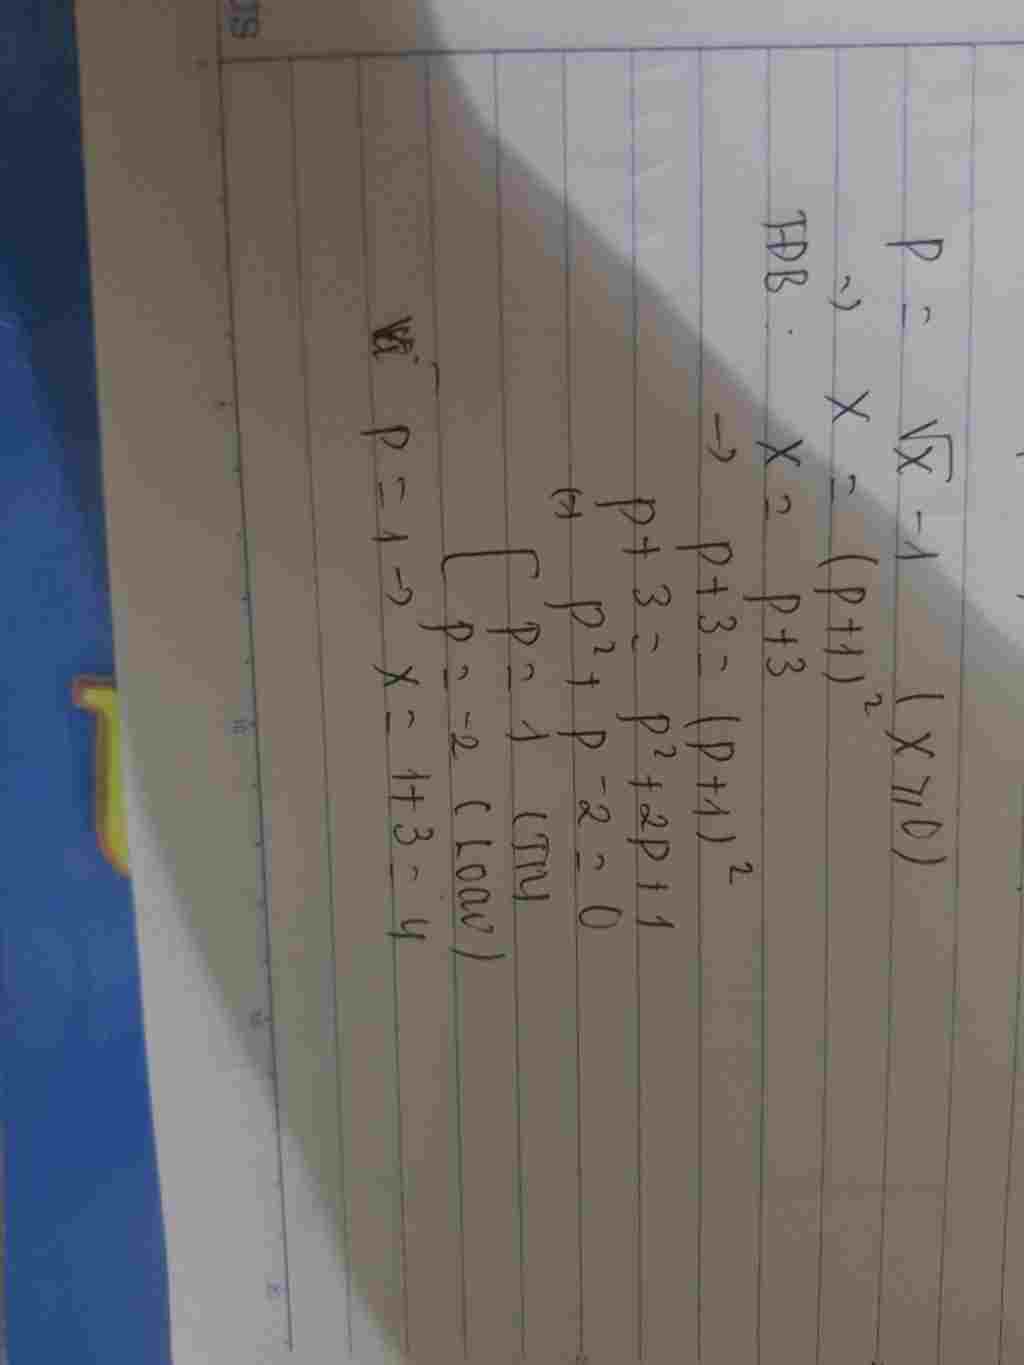 P = √x - 1 (x ≥ 0)
=> x = (p+1)²
TĐB: x = p+3
-> p+3 = (p+1)²
p+3 = p²+2p+1
(=) p² + p - 2 = 0
[ p = 1 (TM)
p = -2 (Loại)
p = 1 -> x = 1+3 = 4